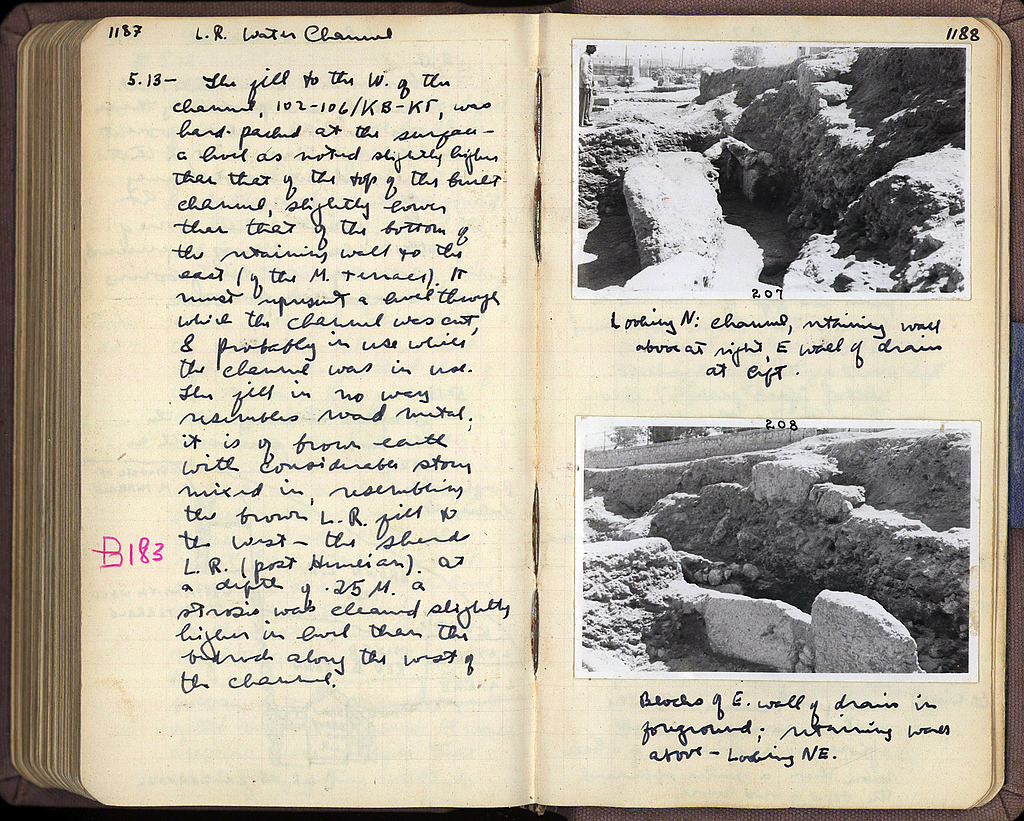 1187 L.R. Water Channel
5.13 — The fill to the W. of the
channel, 102-106/ΚΒ-ΚΓ, was
hard packed at the surface —
a level as noted slightly higher
than that of the top of the built
channel, slightly lower
than that of the bottom of
the retaining wall to the
east (of the M. terrace). It
must represent a level through
which the channel was cut,
& probably in use while
the channel was in use.
The fill in no way
resembles road metal;
it is of brown earth
with considerable stone
mixed in, resembling
the brown L.R. fill to
the west — the sherds
B183
L.R. (post Herulian). At
a depth of .25 M. a
strosis was cleaned slightly
higher in level than the
bedrock along the west of
the channel.
1188
207
Looking N: channel, retaining wall
above at right, E wall of drain
at left.
208
Blocks of E. wall of drain in
foreground; retaining wall
above — Looking NE.